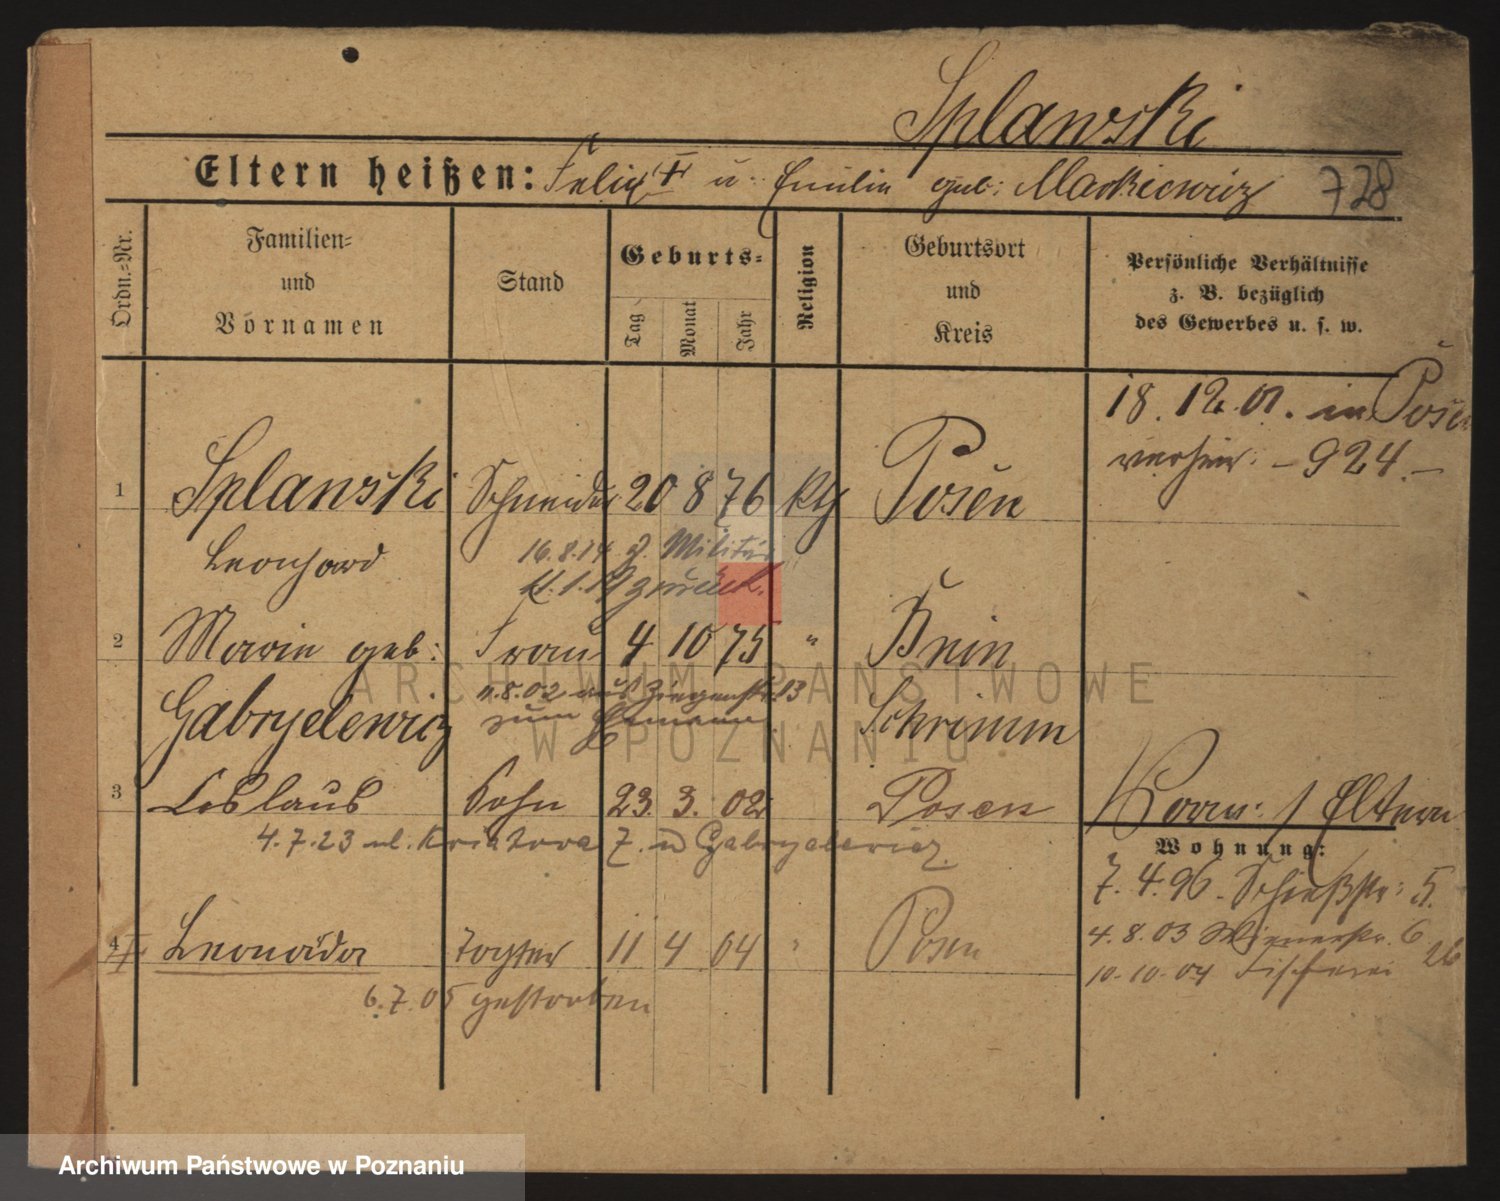 Splawski
Eltern heißen: Felix † u. Emilie geb: Mackiewicz 728
Ordn.-Nr.
Familien- und Vornamen
Stand
Geburts-
Tag
Monat
Jahr
Religion
Geburtsort und Kreis
Persönliche Verhältnisse z. B. bezüglich des Gewerbes u. s. w.
18. 12. 01. in Posen
verheir. - 924 -
1 Splawski Schneider 20 8 76 kth Posen
Leonhard
16.8.14 z. Militär
zurück.
2 Marie geb: Frau 4 10 75 " Bnin
11.8.02 aus Ziegenstr. 13
Gabryelewicz zum Ehemann Schrimm
3 Ceslaus Sohn 23. 3. 02 Posen
Korn: / Eltern
4.7.23 Z. u Gabryelewicz
Wohnung:
7. 4. 96. Schießstr: 5.
4. 8. 03 Wienerstr. 6
4 Leonarda Tochter 11 4 04 " Posen
10.10.04 Fischerei 26
6.7.05 gestorben
ARCHIWUM PAŃSTWOWE
W POZNANIU
Archiwum Państwowe w Poznaniu